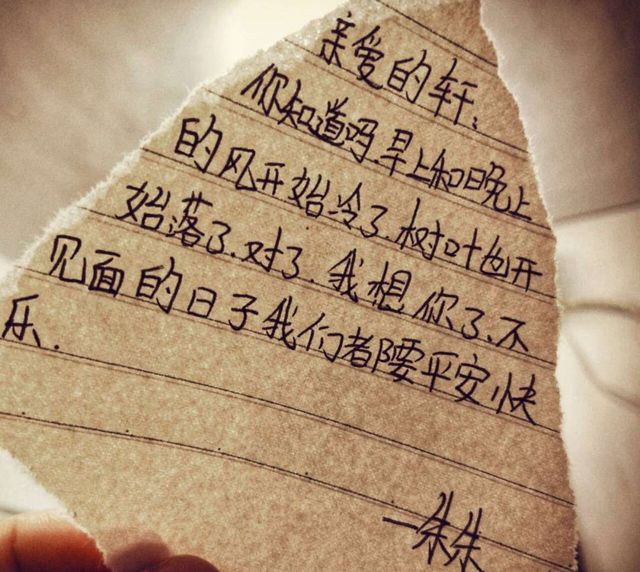 亲爱的轩、
你知道吗早上和晚上
的风开始冷了.树叶也开
始落了.对了.我想你了.不
见面的日子我们都要平安快
乐.
一朱朱